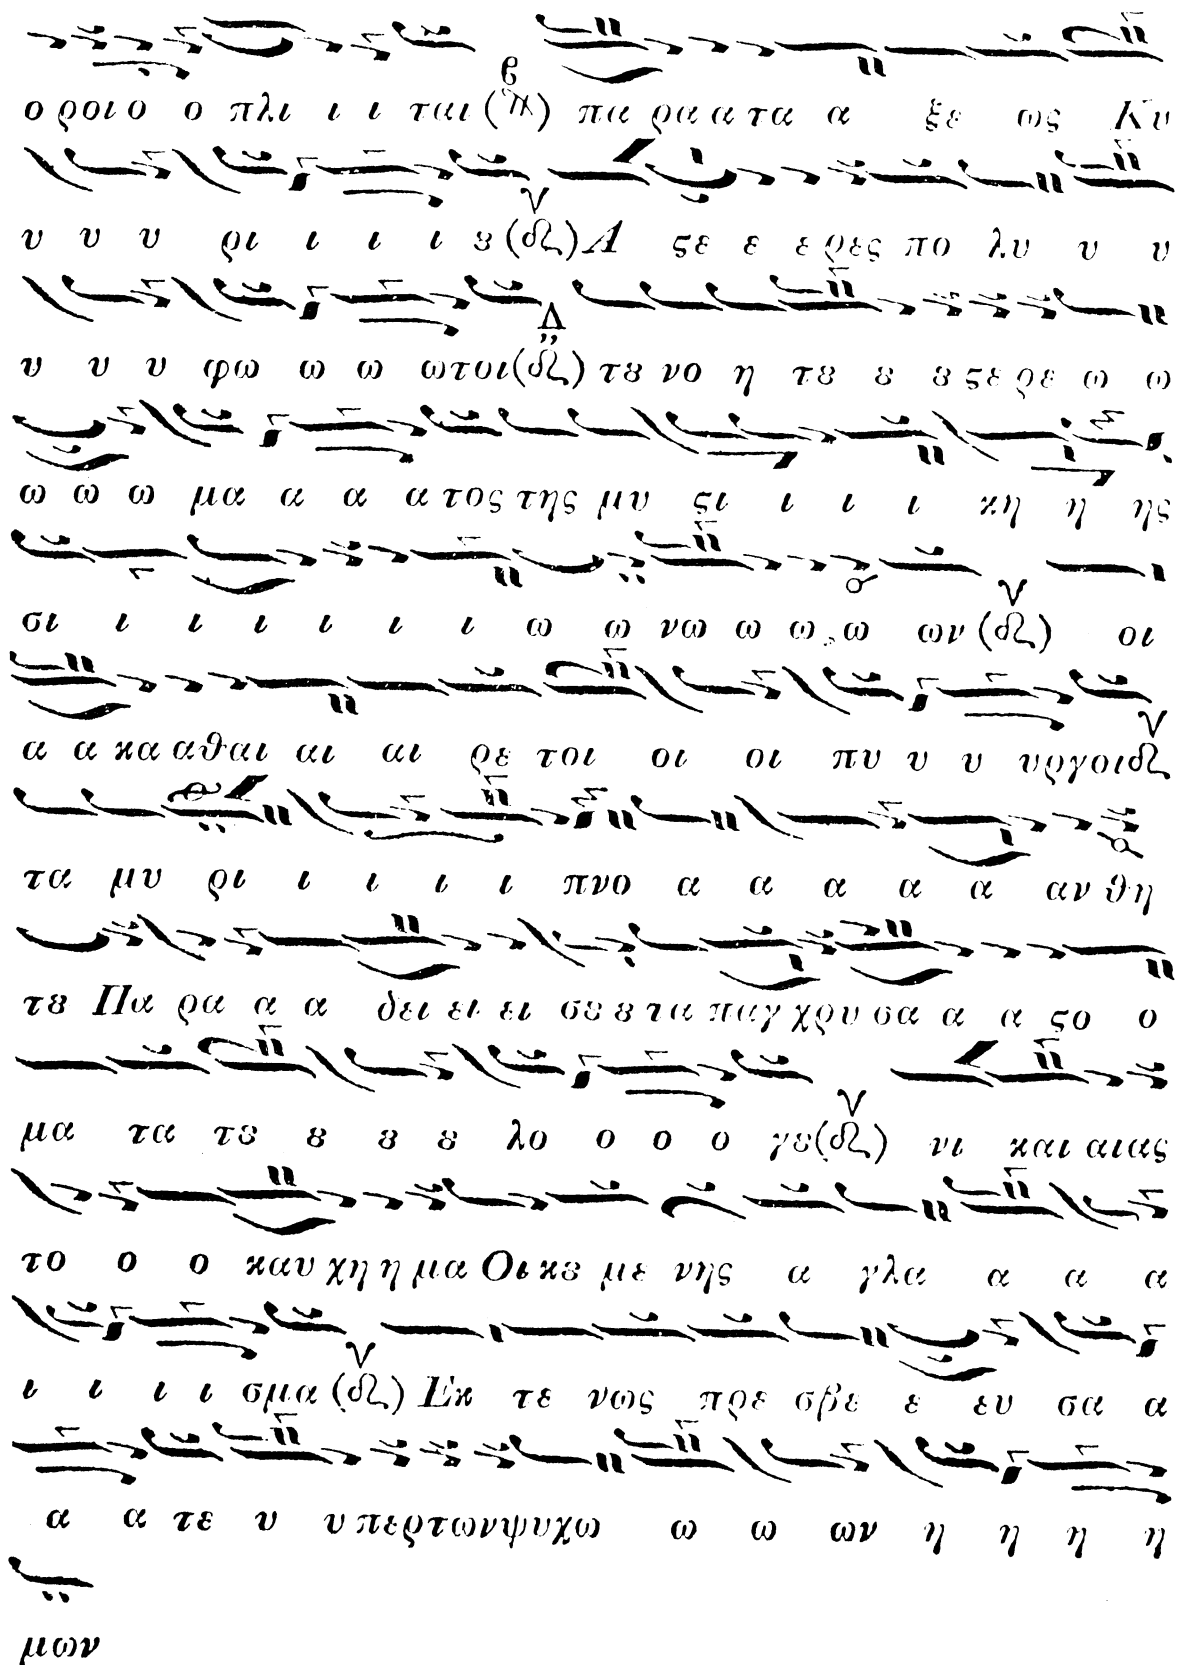 ο ροιο ο πλι ι ι ται (π) πα ρα α τα α ξε ως Κυ
υ υ υ ρι ι ι ι ȣ (δι) Α ϛε ε ε ρες πο λυ υ υ
υ υ υ φω ω ω ωτοι (δι) τȣ νο η τȣ ȣ ȣ ϛε ρε ω ω
ω ω ω μα α α α τος της μυ ϛι ι ι ι κη η ης
σι ι ι ι ι ι ι ω ω νω ω ω ω ων (δι) οι
α α κα αθαι αι αι ρε τοι οι οι πυ υ υ υργοι δι
τα μυ ρι ι ι ι ι πνο α α α α α αν θη
τȣ Πα ρα α α δει ει ει σȣ ȣ τα παγ χρυ σα α α ϛο ο
μα τα τȣ ȣ ȣ ȣ λο ο ο ο γȣ (δι) νι και αιας
το ο ο καυ χη η μα Οι κȣ με νης α γλα α α α
ι ι ι ι σμα (δι) Εκ τε νως πρε σβε ε ευ σα α
α α τε υ υ περ των ψυ χω ω ω ων η η η η
μων